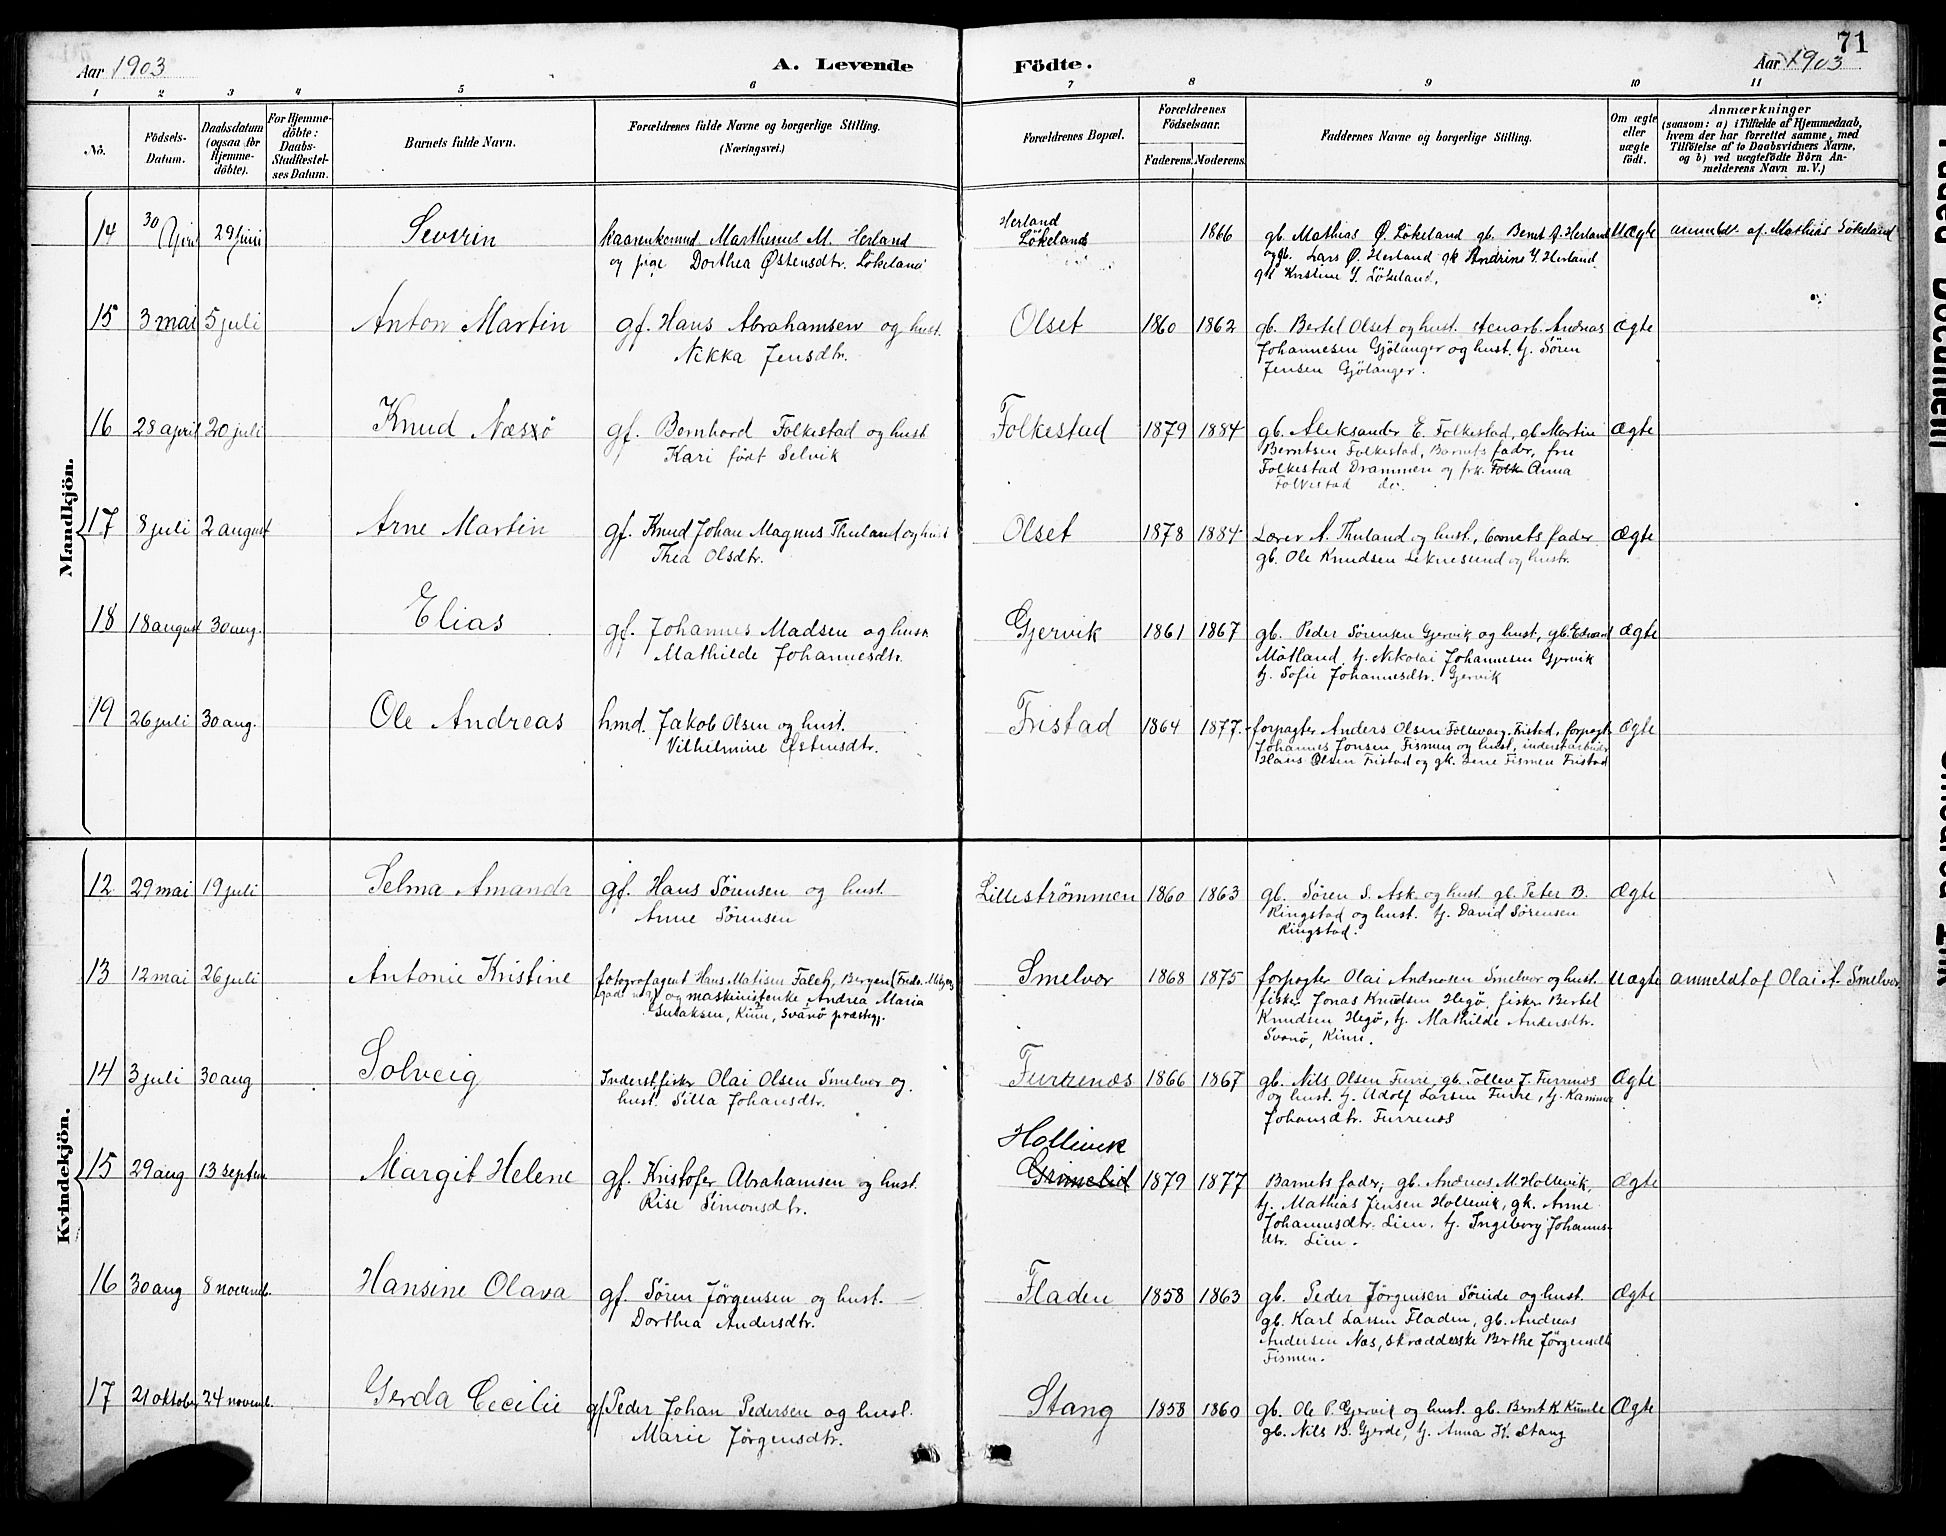 71
Aar 1903
A. Levende
Födte.
Aar 1903
1 2 3 4 5 6 7 8 9 10 11
Nö.
Födsels-Datum.
Daabsdatum (ogsaa for Hjemme-döbte).
For Hjemme-döbte: Daabs-Stadfæstel-ses Datum.
Barnets fulde Navn.
Forældrenes fulde Navne og borgerlige Stilling.
(Næringsvei.)
Forældrenes Bopæl.
Forældrenes Födselsaar.
Faderens. Moderens.
Faddernes Navne og borgerlige Stilling.
Om ægte eller uægte födt.
Anmærkninger
(saasom: a) i Tilfælde af Hjemmedaab,
hvem der har forrettet samme, med
Tilföielse af to Daabsvidners Navne,
og b) ved uægtefödte Börn An-
melderens Navn m. V.)
Mandkjön.
14 30 April 29 juni Severin
Marthinus M. Herland
og pige Dorthea Østensdtr. Løkeland
Herland
Løkeland
1866
gb. Mathias Ø. Løkeland gb. Bernt A. Herland
Lars Ø. Herland gk Andrine Y. Herland
Kristine Y. Løkeland.
Uægte
anmeldt af Mathias Løkeland
15 3 mai 5 juli Anton Martin
gf. Hans Abrahamsen og hust.
Nikka Jensdtr.
Olset 1860 1862
gb. Bertel Olset og hust. stenarb. Andreas
Johannesen Gjølanger og hust. tj. Søren
Jensen Gjølanger.
Ægte
16 28 april 20 juli Knud Næsø
gf. Bernhard Folkestad og hust
Kari født Selvik
Folkestad 1879 1884
gb. Aleksander E. Folkestad, gb Martin
Berntsen Folkestad, Barnets fader, fru
Folkestad Drammen og frk. Folk Anna
Folkestad do.
Ægte
17 8 juli 2 august Arne Martin
gf. Knud Johan Magnus Thuland og hust
Thea Olsdtr.
Olset 1878 1884
Lærer A. Thuland og hust., barnets fader
gb. Ole Knudsen Leknesund og hustr.
Ægte
18 18 august 30 aug. Elias
gf. Johannes Madsen og hust.
Mathilde Johannesdtr.
Gjervik 1861 1867
gb. Peder Sørensen Gjervik og hust, gb. Edvard
Møtland tj. Nikolai Johannesen Gjervik
tj. Sofie Johannesdtr. Gjervik
Ægte
19 26 juli 30 aug. Ole Andreas
hmd. Jakob Olsen og hust.
Vilhelmine Østensdtr.
Fristad 1864 1877.
forpagter Anders Olsen Follevaag Fristad, forpagt.
Johannes Jonsen Fismen og hust, inderstarbeider
Hans Olsen Fristad og gk. Lene Fismen Fristad
Ægte
Kvindekjön.
12 29 mai 19 juli Selma Amanda
gf. Hans Sørensen og hust.
Anne Sørensen
Lillestrømmen 1860 1863
gb. Søren S. Ask og hust. gb. Peter B.
Ringstad og hust. tj. David Sørensen
Ringstad.
Ægte
13 12 mai 26 juli Antonie Kristine
fotografagent Hans Matisen Falch, Bergen
og maskinistenke Andrea Maria
Kinn, Svanø præstegj.
Smelvor 1868 1875
forpagter Olai Andersen Smelvor og hust.
fisker Jonas Knudsen Hegø, fisker Bertel
Knudsen Hegø, tj. Mathilde Andersdtr.
Svanø, Kinn.
Uægte
anmeldt af Olai A. Smelvor
14 3 juli 30 aug Solveig
Inderst, fisker Olai Olsen Smelvor og
hust. Silla Johansdtr.
Furrenes 1866 1867
gb. Nils Olsen Furre, gb. Tollev J. Furrenes
og hust. tj. Adolf Larsen Furre, tj. Kamma
Johansdtr. Furrenes
Ægte
15 29 aug 13 septbr Margit Helene
gf. Kristofer Abrahamsen og hust.
Rise Simonsdtr.
Hollevik
Grimelid
1879 1877
Barnets fader, gb. Andreas M. Hollevik,
tj. Mathias Jensen Hollevik, gk. Anne
Johannesdtr. Lien, tj. Ingeborg Johannes-
dtr. Lien.
Ægte
16 30 aug 8 novemb. Hansine Olava
gf. Søren Jørgensen og hust.
Dorthea Andersdtr.
Fladen 1858 1863
gb. Peder Jørgensen Søreide og hust.
gb. Karl Larsen Fladen, gb. Andreas
Andersen Næs, skrædderske Berthe Jørgensdtr
Fismen.
Ægte
17 21 oktober 24 novemb. Gerda Cecilie
gf Peder Johan Pedersen og hust.
Marie Jørgensdtr.
Stang 1858 1860
gb. Ole P. Gjervik og hust. gb. Bernt K. Kumle
gb. Nils B. Gjerde, tj. Anna K. Stang
Ægte